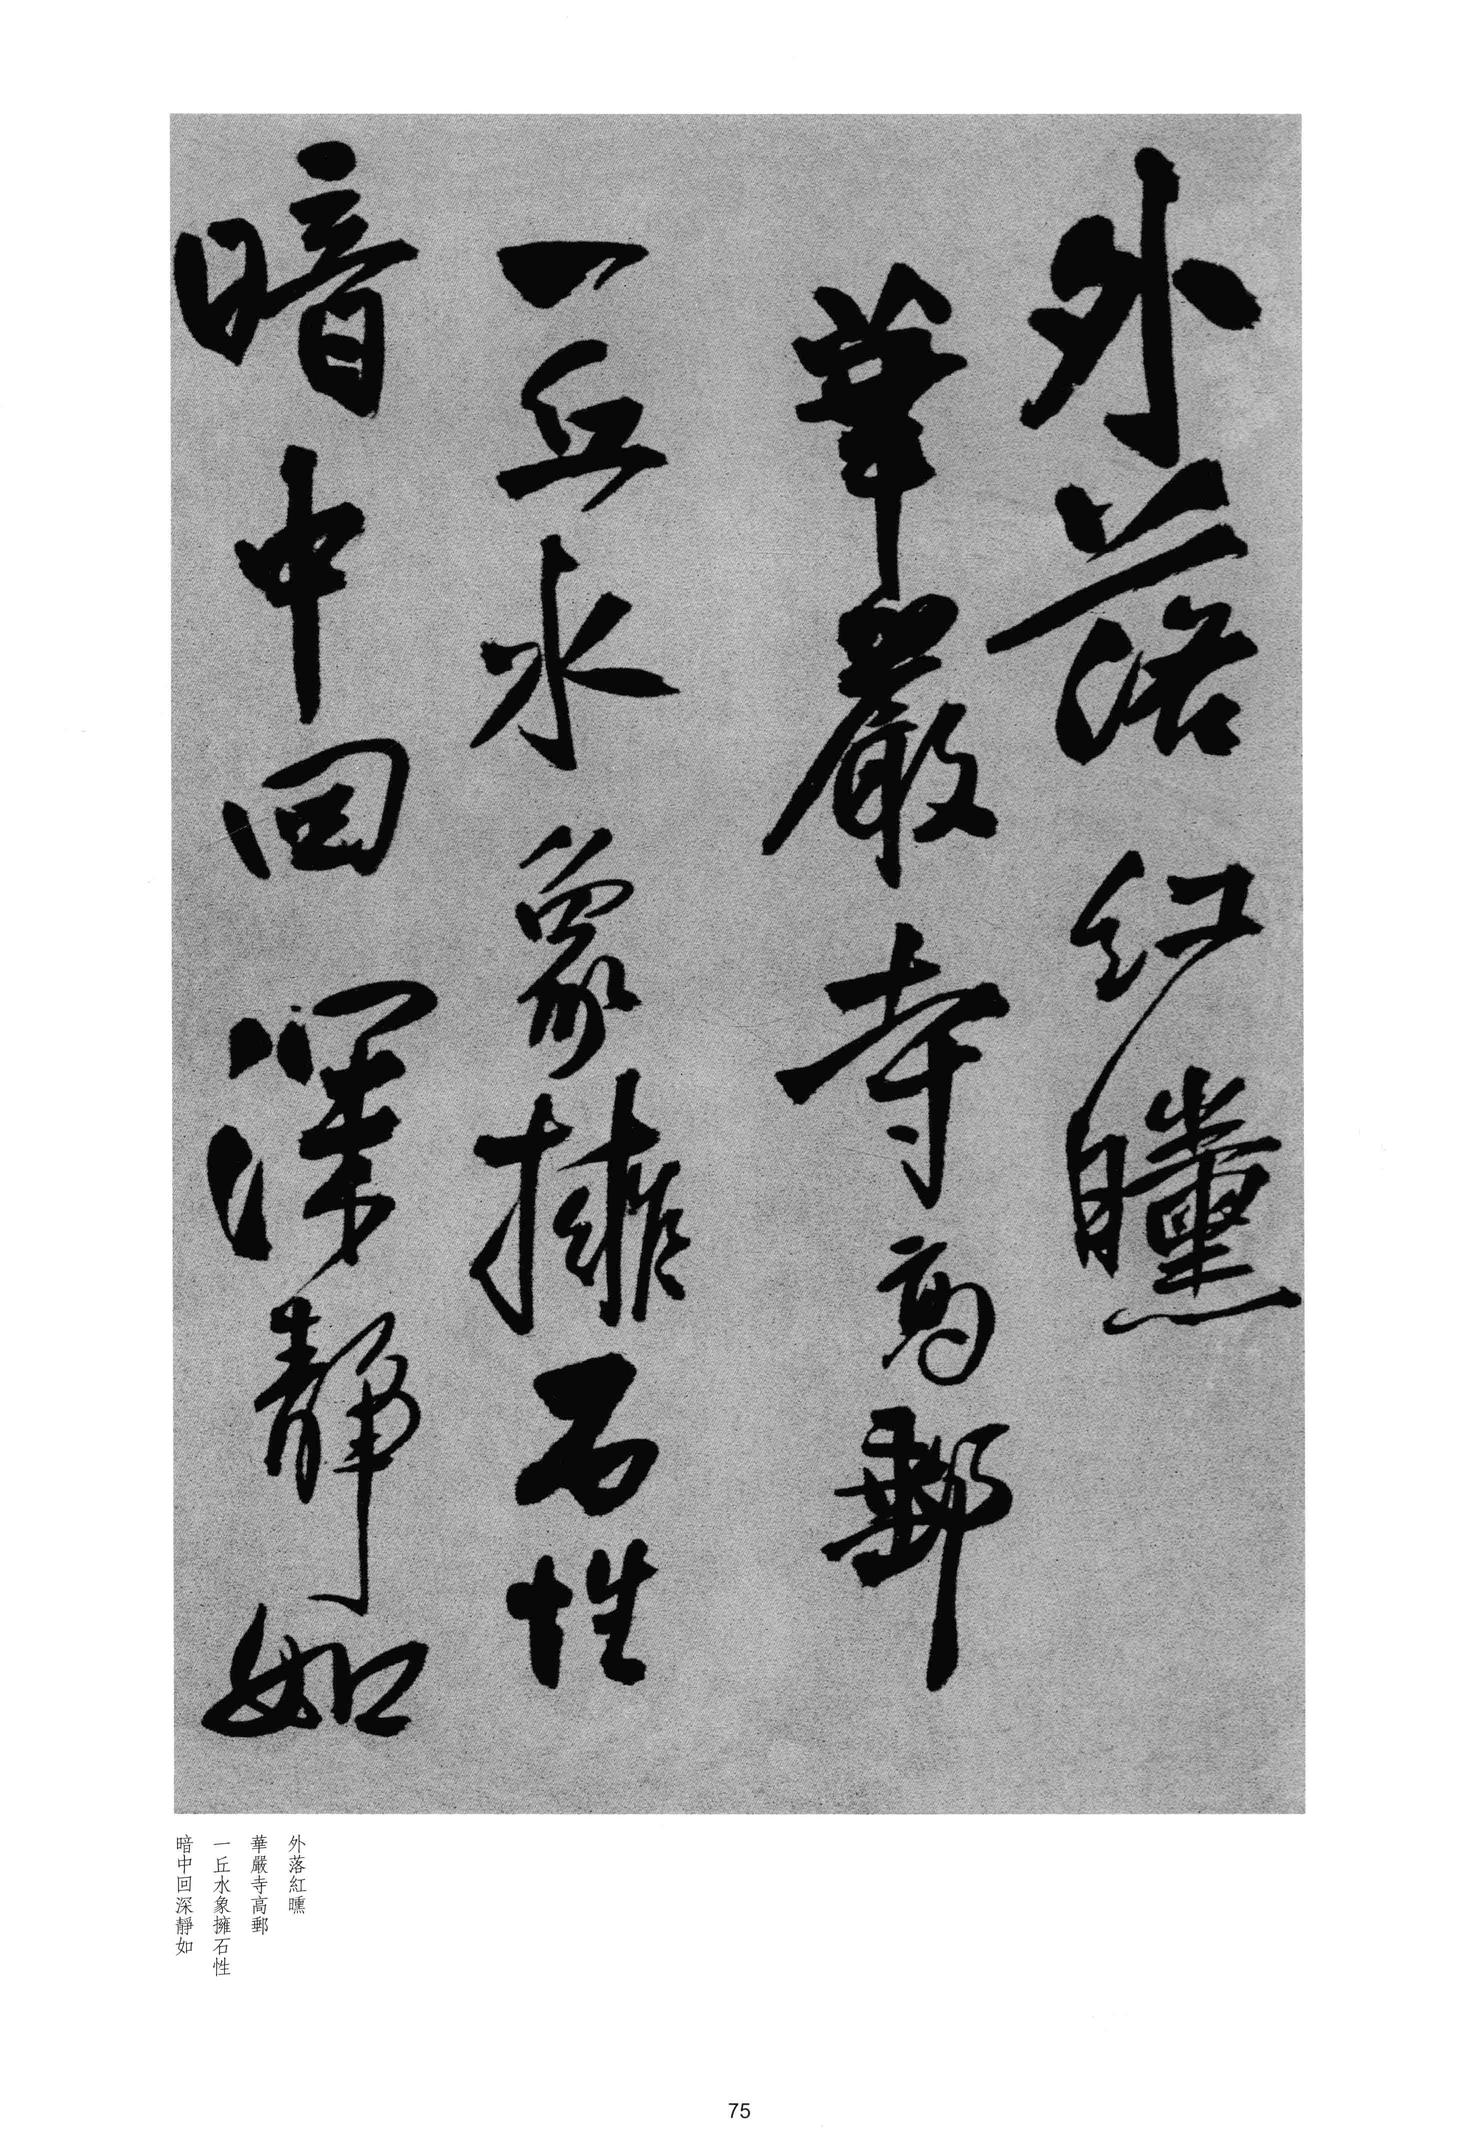 外落紅曛
華嚴寺高郵
一丘水象擁石性
暗中回深靜如
外落紅曛
華嚴寺高郵
一丘水象擁石性
暗中回深靜如
75